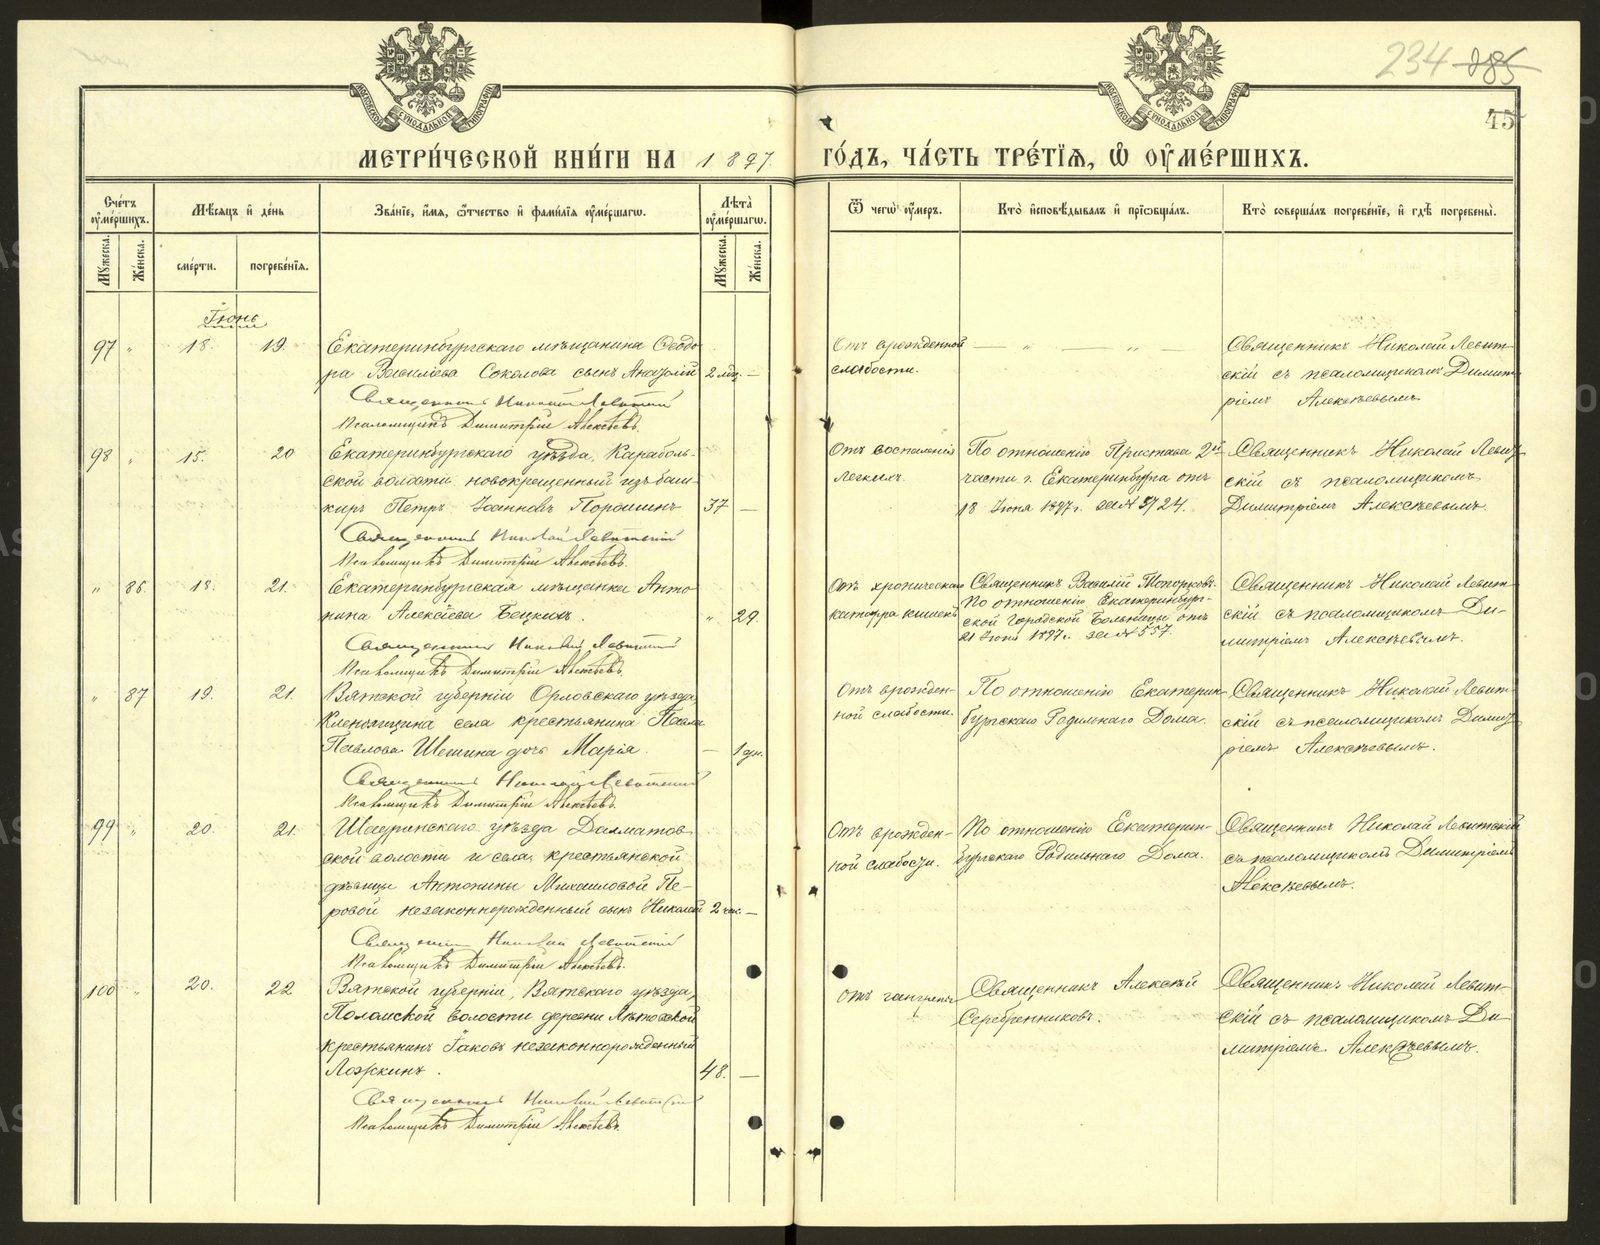 234 285
45
МЕТРИ́ЧЕСКОЙ КНИ́ГИ НА 1897. ГО́ДЪ, ЧА́СТЬ ТРЕ́ТІѦ, Ѿ ОУМЕ́РШИХЪ.
Сче́тъ оуме́ршихъ.
Мѣ́сяцъ и де́нь
Зва́нїе, и́мя, ѻ́тчество и фами́лїя оуме́ршагѡ.
Лѣта̀ оуме́ршагѡ.
Ѿ чегѡ̀ оу́меръ.
Кто̀ и҆сповѣ́дывалъ и҆ прїѡбща́лъ.
Кто̀ соверша́лъ погребе́нїе, и҆ гдѣ̀ погребены̀.
Мꙋжеска.
Же́нска.
сме́рти.
погребе́нїя.
Мꙋжеска.
Же́нска.
Іюнь
97 " 18. 19. Екатеринбургскаго мѣщанина Ѳеодо-
ра Васильева Соколова сынъ Анатолій 2 мѣс. —
Священникъ Николай Левитскій
Псаломщикъ Димитрій Алексѣевъ.
Отъ врожденной
слабости.
— " — " —
Священникъ Николай Левит-
скій съ псаломщикомъ Димит-
ріемъ Алексѣевымъ
98 " 15. 20 Екатеринбургскаго уѣзда, Караболь-
ской волости новокрещенный изъ баш-
киръ Петръ Іоанновъ Порошинъ 37 —
Священникъ Николай Левитскій
Псаломщикъ Димитрій Алексѣевъ.
Отъ воспаленія
легкихъ.
По отношенію Пристава 2й
части г. Екатеринбурга отъ
18 Іюня 1897г. за №
Священникъ Николай Левит-
скій съ псаломщикомъ
Димитріемъ Алексѣевымъ.
" 86. 18. 21. Екатеринбургская мѣщанка Анто-
нина Алексѣева Бецкихъ. " 29.
Священникъ Николай Левитскій
Псаломщикъ Димитрій Алексѣевъ.
Отъ хроническаго
катарра кишекъ
Священникъ Василій Топорковъ
По отношенію Екатеринбург-
ской Городской Больницы отъ
21 Іюня 1897г. за № 557.
Священникъ Николай Левит-
скій съ псаломщикомъ Ди-
митріемъ Алексѣевымъ.
" 87 19. 21. Вятской губерніи Орловскаго уѣзда,
села крестьянина Павла
Павлова Шешина дочь Марія. — 1 дн.
Священникъ Николай Левитскій
Псаломщикъ Димитрій Алексѣевъ.
Отъ врожден-
ной слабости.
По отношенію Екатерин-
бургскаго Родильнаго Дома.
Священникъ Николай Левит-
скій съ псаломщикомъ Димит-
ріемъ Алексѣевымъ.
99 " 20. 21. Шадринскаго уѣзда Далматов-
ской волости и села, крестьянской
дѣвицы Антонины Михаиловой Пе-
ровой незаконнорожденный сынъ Николай 2 час. —
Священникъ Николай Левитскій
Псаломщикъ Димитрій Алексѣевъ.
Отъ врожден-
ной слабости.
По отношенію Екатерин-
бургскаго Родильнаго Дома.
Священникъ Николай Левитскій
съ псаломщикомъ Димитріемъ
Алексѣевымъ.
100 " 20. 22 Вятской губерніи, Вятскаго уѣзда,
Поломской волости деревни
крестьянинъ Іаковъ незаконнорожденный
Ложкинъ. 48. —
Священникъ Николай Левитскій
Псаломщикъ Димитрій Алексѣевъ.
Отъ гангрены
Священникъ Алексѣй
Серебренниковъ.
Священникъ Николай Левит-
скій съ псаломщикомъ Ди-
митріемъ Алексѣевымъ.